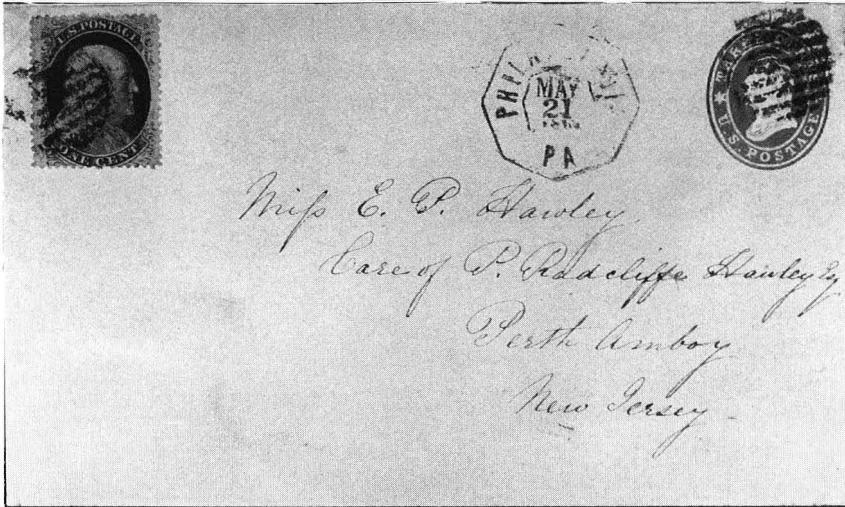 U.S. POSTAGE
ONE CENT
MAY
21
PA
THREE
U.S. POSTAGE
Miss E. P. Hawley
Care of P. Radcliffe Hawley Esq
Perth Amboy
New Jersey